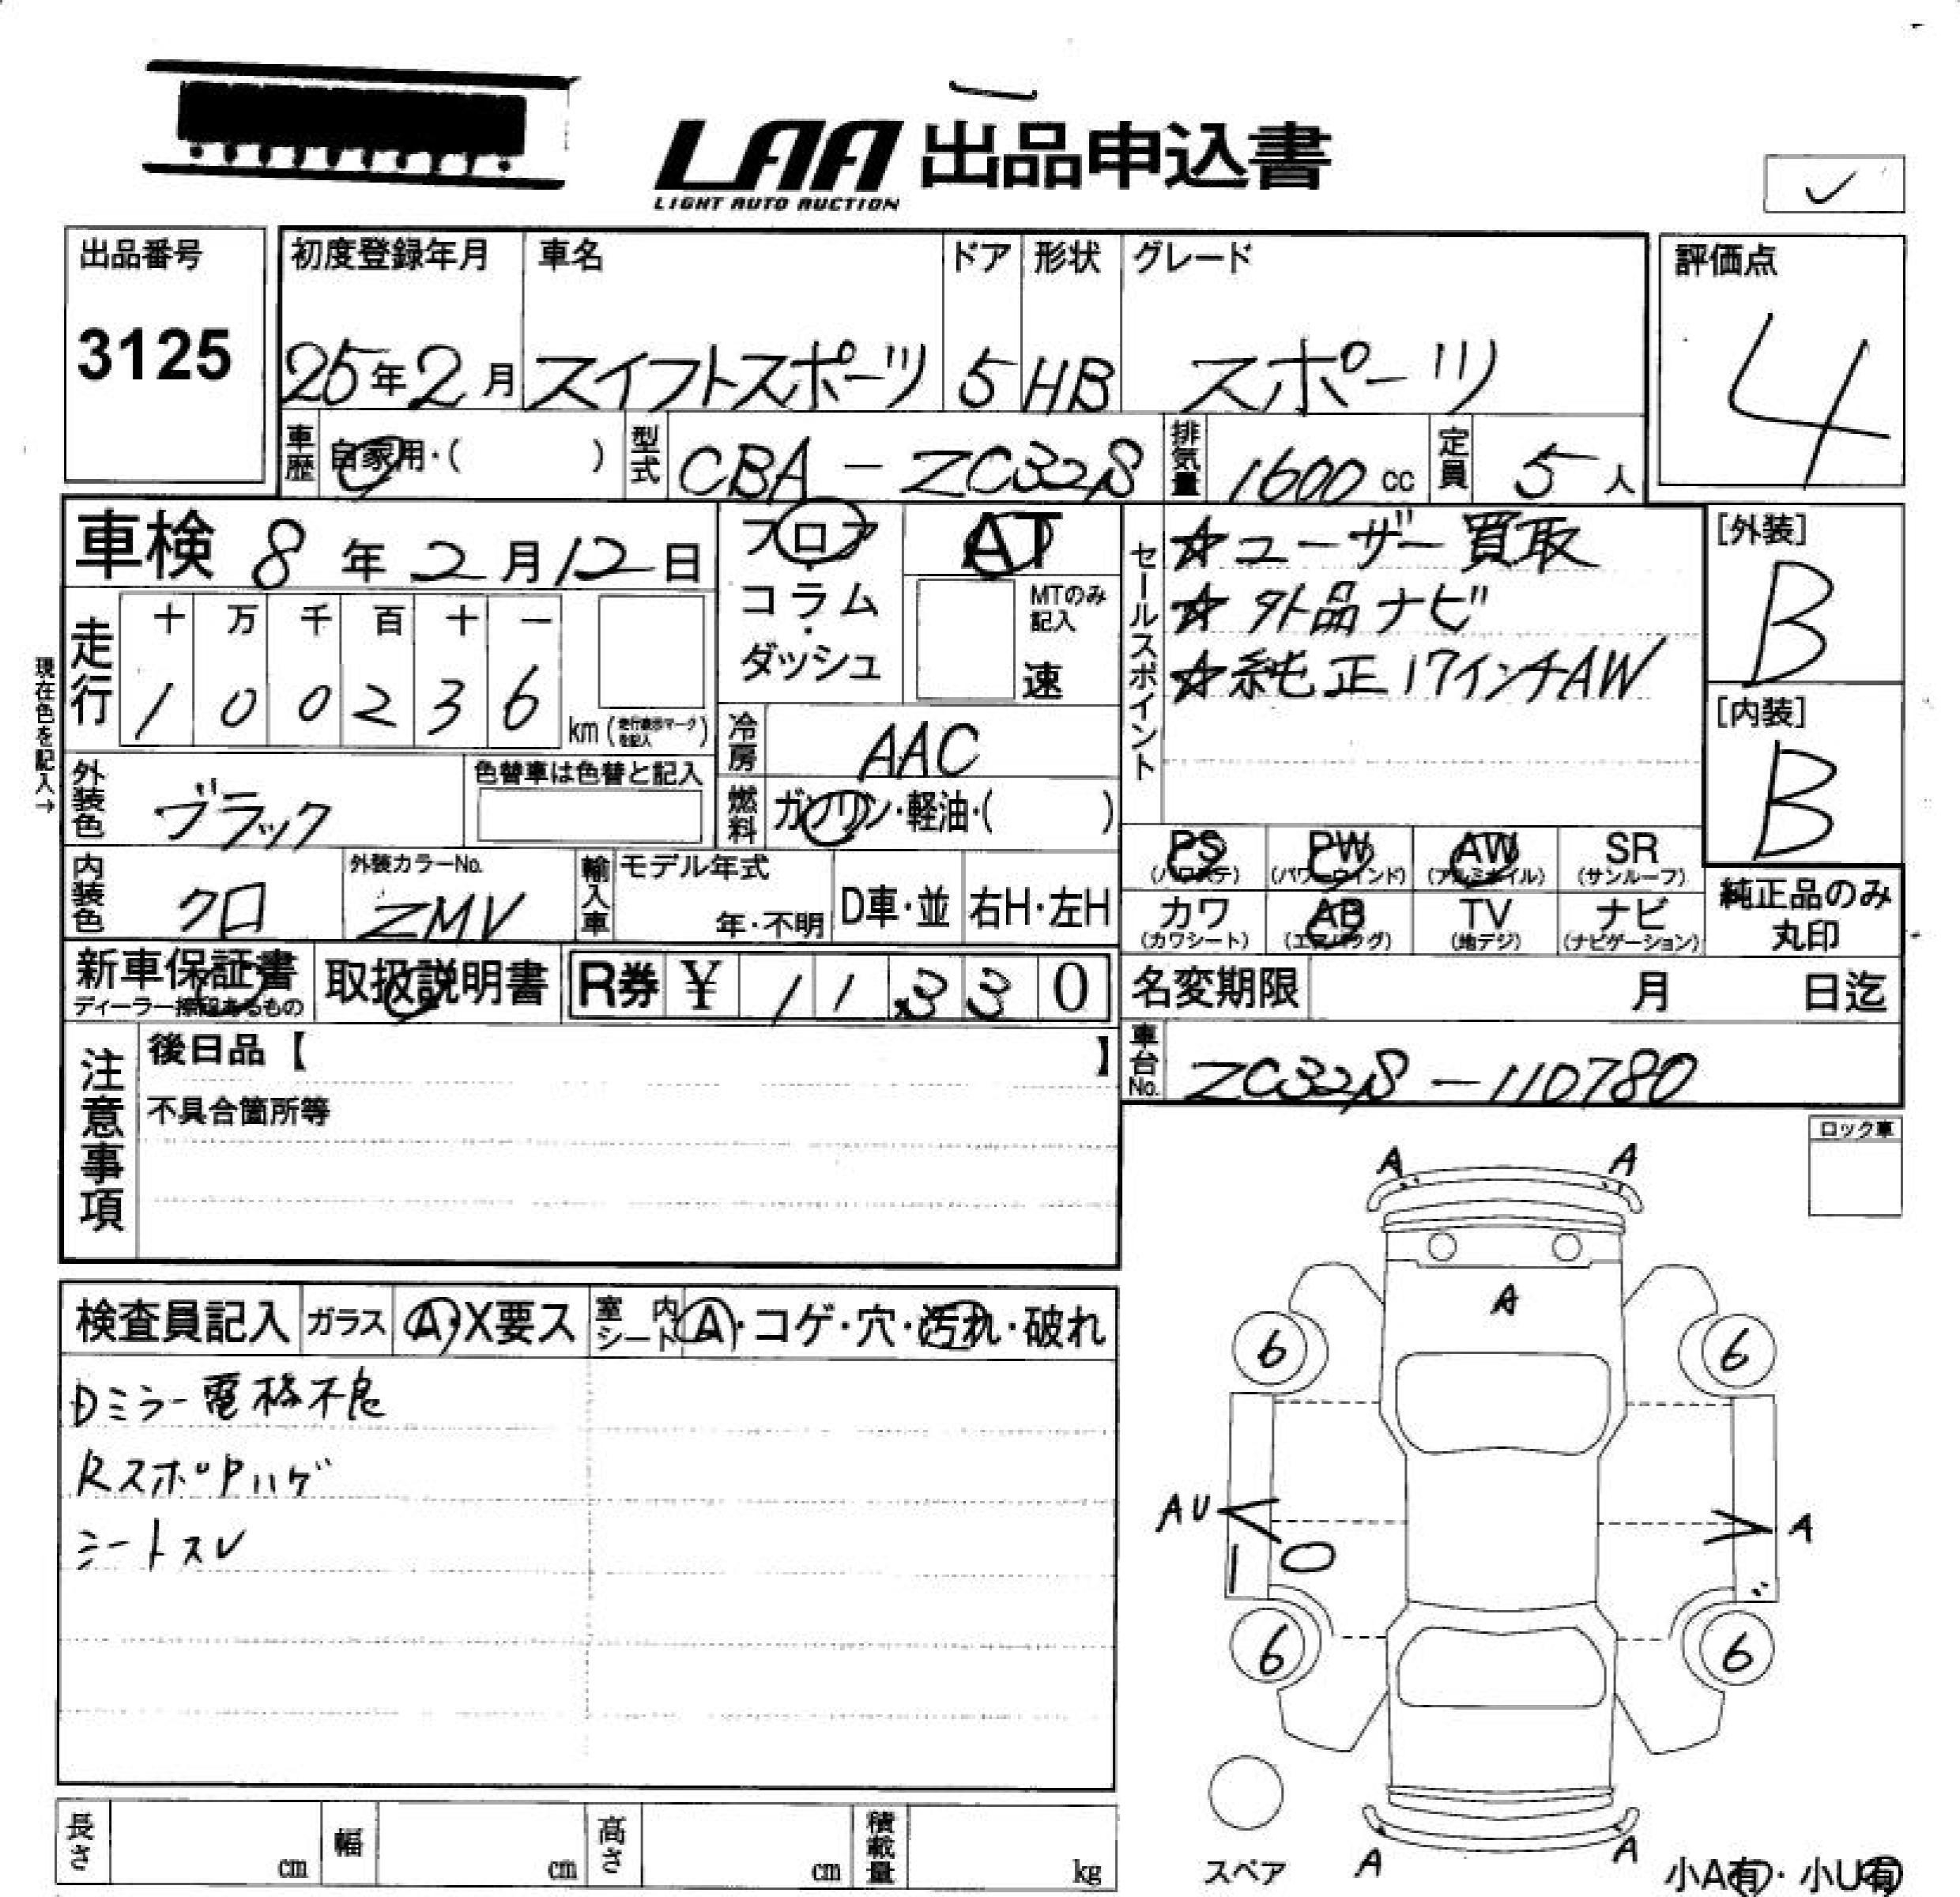 LAA 出品申込書
LIGHT AUTO AUCTION
✓
出品番号
3125
初度登録年月
25年2月
車名
スイフトスポーツ
ドア
5
形状
HB
グレード
スポーツ
評価点
4
車歴 自家用・( )
型式 CBA-ZC32S
排気量 1600 cc
定員 5人
車検 8年2月12日
フロア・コラム・ダッシュ
AT
MTのみ記入
速
セールスポイント
☆ユーザー買取
☆外品ナビ
☆純正17インチAW
[外装]
B
[内装]
B
現在色を記入→
走行
十 万 千 百 十 一
1 0 0 2 3 6 km (走行表示マークを記入)
冷房 AAC
燃料 ガソリン・軽油・( )
外装色 ブラック
色替車は色替と記入
内装色 クロ
外装カラーNo. ZMV
輸入車 モデル年式 年・不明 D車・並 右H・左H
PS (パワステ) PW (パワーウインド) AW (アルミホイル) SR (サンルーフ)
カワ (カワシート) AB (エアバッグ) TV (地デジ) ナビ (ナビゲーション)
純正品のみ丸印
新車保証書
ディーラー捺印あるもの
取扱説明書
R券 ¥ 11330
名変期限 月 日迄
車台No. ZC32S-110780
注意事項
後日品【 】
不具合箇所等
ロック車
検査員記入 ガラス A・X要ス 室内シート A・コゲ・穴・汚れ・破れ
Dミラー電格不良
RスポPハゲ
シートスレ
A A
A
6 6
AU A
6 6
スペア A A
小A有・小U有
長さ cm 幅 cm 高さ cm 積載量 kg